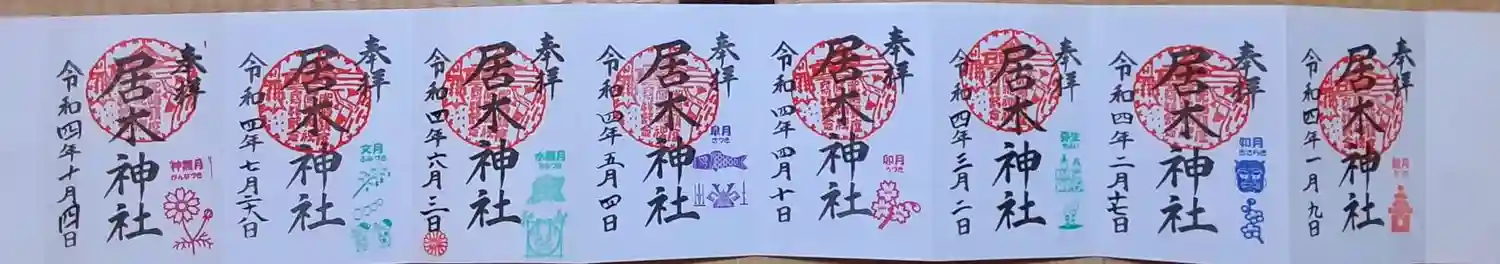 奉拝
居木神社
睦月
令和四年一月九日
奉拝
居木神社
きさらぎ
令和四年二月十七日
奉拝
居木神社
弥生
やよい
令和四年三月二日
奉拝
居木神社
卯月
うづき
令和四年四月十日
奉拝
居木神社
皐月
さつき
令和四年五月四日
奉拝
居木神社
水無月
みなづき
令和四年六月三日
奉拝
居木神社
文月
ふみづき
令和四年七月二十八日
奉拝
居木神社
神無月
かんなづき
令和四年十月四日